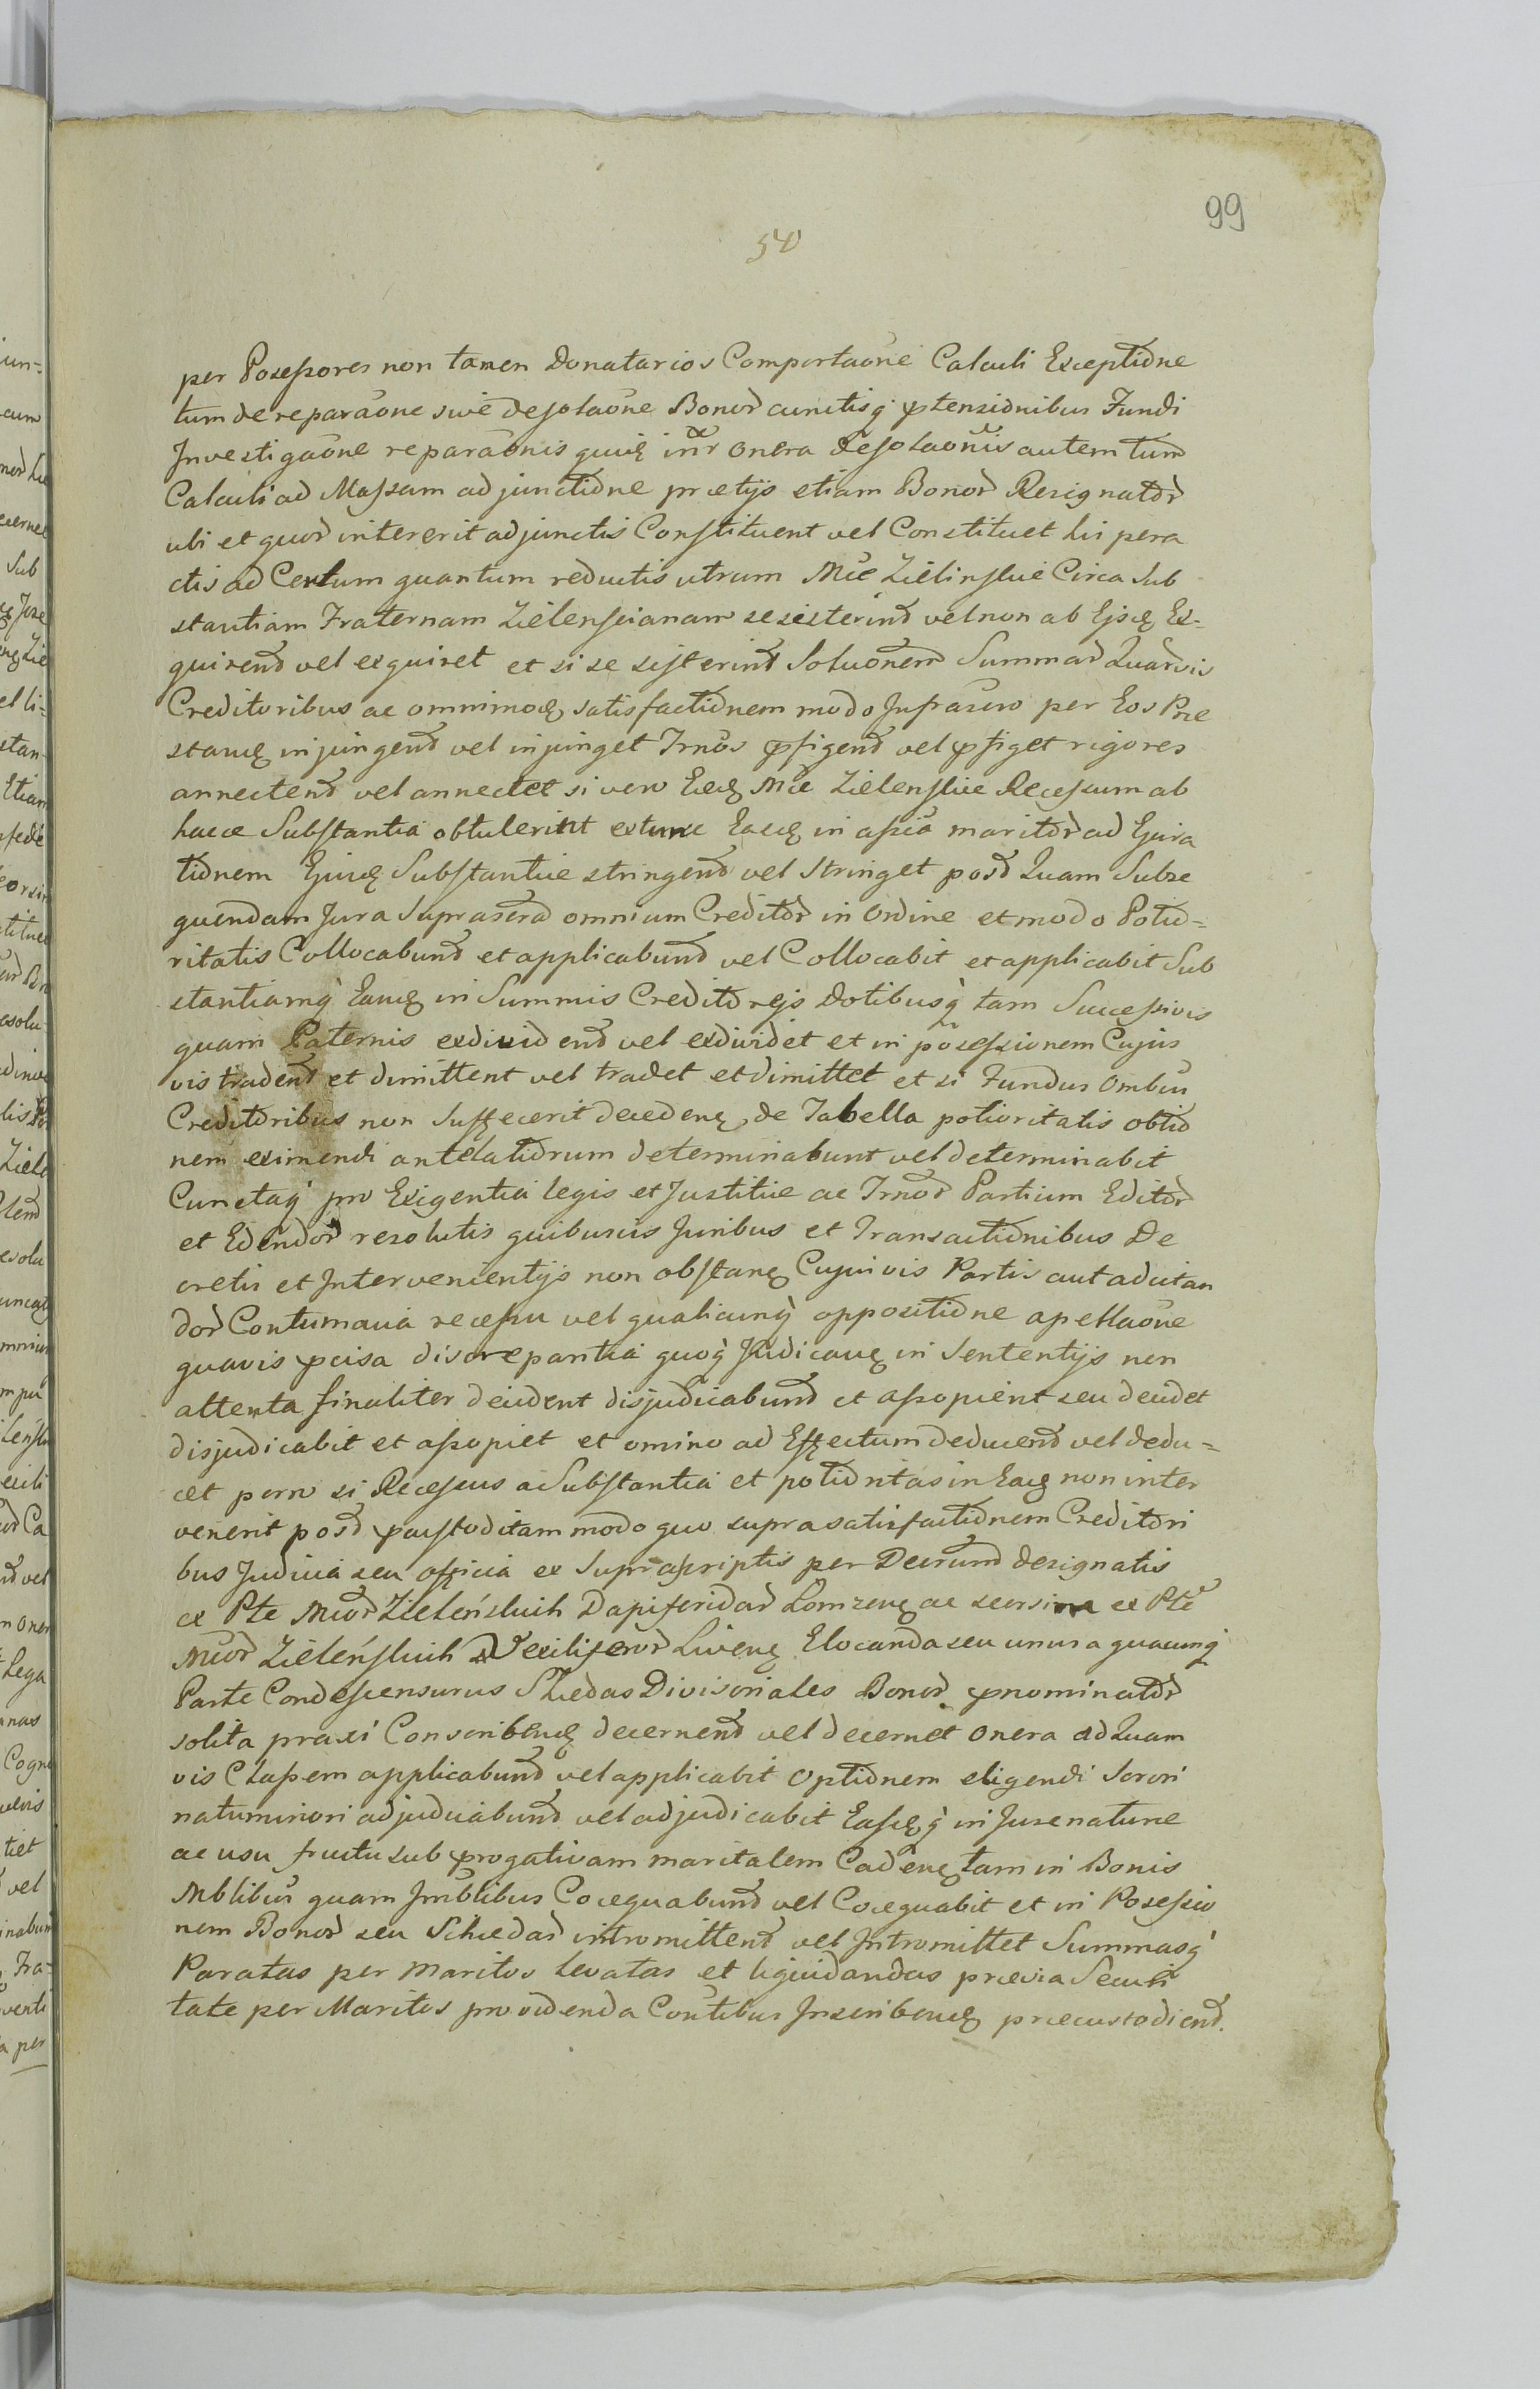 99
54
per Posessores non tamen Donatarios Comportaōne Calculi Exceptiōne
tum de reparaōne sive desolaōne Bonor cunctisq̀ p̄tensiōnibus Fundi
Investigaōne reparaōnis quiq̨ intr onera desolaōnis autem tum
Calculi ad Massam adjunctiōne prœtijs etiam Bonor Resignator
ubi et quor intererit adjunctis Constituent vel Constituet his pera
ctis ad Certum quantum reductis utrum Mcæ Zielinskie Circa Sub
stantiam Fraternam Zielenscianam se sisterind vel non ab Ejsq̨ Ex-
quirend vel exquiret et si se sisterind Soluōnem Summar Quarvis
Creditoribus ac omnimoq̨ satisfactiōnem modo Infrascro per Eos Præ
stanq̨ injungend vel injunget Trnōs p̄figend vel p̄figet rigores
annectend vel annectet si vero Eæq̨ Mcæ Zielenskie Recessum ab
hacce Substantia obtulerint extunc Easq̨ in assia maritor ad Ejura
tiōnem Ejusq̨ Substantiæ stringend vel Stringet post Quam Subse
quendam Jura Suprascra omnium Creditor in Ordine et modo Potio=
ritatis Collocabund et applicabund vel Collocabit et applicabit Sub
stantiamq̀ Eanq̨ in Summis Creditorejs Dotibusq̀ tam Successivis
quam Paternis exdividend vel exdividet et in posessionem Cujus
vis tradent et dimittent vel tradet et dimittet et si Fundus Ombus
Creditoribus non Suffecerit decedenq̨ de Tabella potioritatis obtio
nem eximendi antelatiorum determinabunt vel determinabit
Cunctaq̀ pro Exigentia legis et Justitiæ ac Trnor Partium Editor
et Edendor resolutis quibusvis Juribus et Transactiōnibus De
cretis et Intervenientijs non obstanq̨ Cujusvis Partis aut adcitan
dor Contumacia recessu vel qualicunq̀ oppositiōne apellaōne
quavis p̄cisa discrepantia quoq̀ Judicanq̨ in Sententijs non
attenta finaliter decident disjudicabund et assopient seu decidet
disjudicabit et assopiet et omino ad Effectum deducend vel dedu=
cet porro si Recessus a Substantia et potioritas in Eaq̨ non inter
venerit post p̄custoditam modo quo supra satisfactiōnem Creditori
bus Judicia seu officia ex Suprascriptis per Decrum designatis
ex Pte Mcor Zieleńskich Dapiferidar Lomzenq̨ ac seorsim ex Pte
Mcor Zieleńskich Vexiliferor Livenq̨ Elocanda seu unus a quacunq̀
Parte Condescensurus Shedas Divisoriales Bonor p̄nominator
solita praxi Conscribenq̨ decernend vel decernet onera ad Quam
vis Classem applicabund vel applicabit Optiōnem eligendi Sorori
natuminori adjudicabund vel adjudicabit Easq̨q̀ in Jure naturæ
ac usu fructu sub p̄rogativam maritalem Cadenq̨ tam in Bonis
Mblibus quam Imblibus Coæquabund vel Coæquabit et in Posessio
nem Bonor seu Schedar intromittend vel Intromittet Summasq̀
Paratas per maritos levatas et liquidandas prævia Securi
tate per Maritos providenda Contibus Inscribenq̨ præcustodiend.